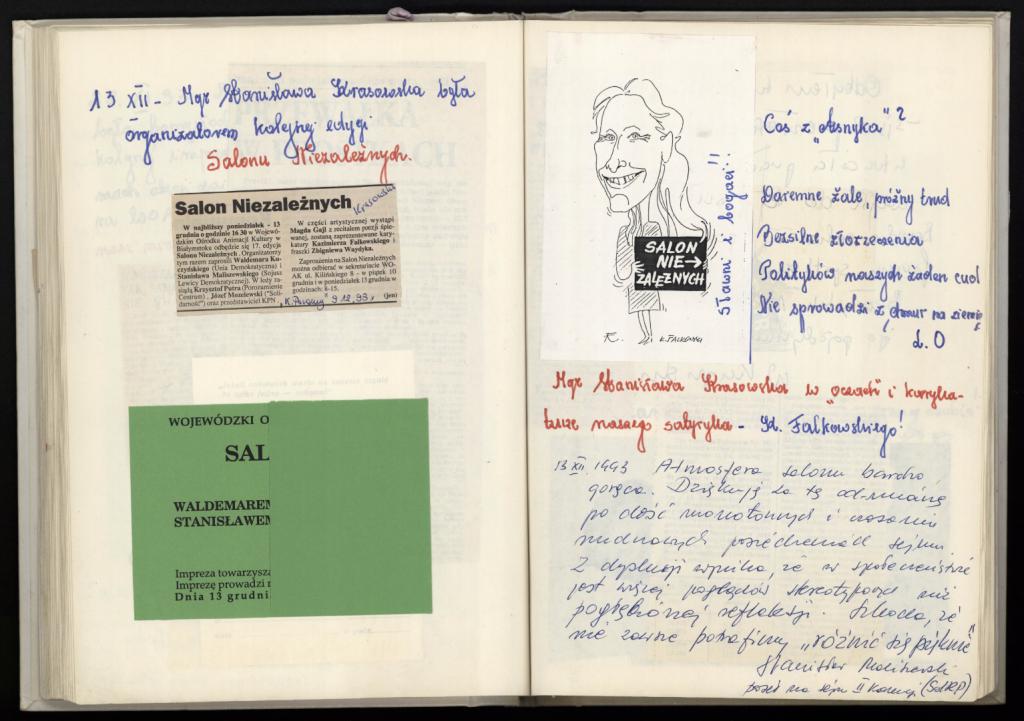 13 XII - Mgr Stanisława Krasowska była
organizatorem kolejnej edycji
Salonu Niezależnych.
Salon Niezależnych
Krasowska
W najbliższy poniedziałek - 13
grudnia o godzinie 16 30 w Wojewó-
dzkim Ośrodku Animacji Kultury w
Białymstoku odbędzie się 17. edycja
Salonu Niezależnych. Organizatorzy
tym razem zaprosili Waldemara Ka-
czyńskiego (Unia Demokratyczna) i
Stanisława Maliszewskiego (Sojusz
Lewicy Demokratycznej). W ledy za-
siądą Krzysztof Putra (Porozumienie
Centrum), Józef Mozelewski ("Soli-
darność") oraz przedstawiciel KPN
W części artystycznej wystąpi
Magda Gajl z recitalem poezji śpie-
wanej, zostaną zaprezentowane kary-
katury Kazimierza Falkowskiego i
fraszki Zbigniewa Waydyka.
Zaproszenia na Salon Niezależnych
można odbierać w sekretariacie WO-
AK ul. Kilińskiego 8 - w piątek 10
grudnia i w poniedziałek 13 grudnia w
godzinach: 8-15.
(jen)
K. Poranny 9.12.93r
WOJEWÓDZKI O
SAL
WALDEMAREM
STANISŁAWEM
Impreza towarzysza
Imprezę prowadzi r
Dnia 13 grudni
SALON
NIE→
ZALEŻNYCH
Sławni i bogaci!!
K. FALKOWSKI
Coś z "Asnyka"?
Daremne żale, próżny trud
Bezsilne złorzeczenia
Polityków naszych żaden cud
Nie sprowadzi z chmur na ziemię
Ł. O
Mgr Stanisława Krasowska w "oczach" i karyka-
turze naszego satyryka - K. Falkowskiego!
13 XII 1993 Atmosfera salonu bardzo
gorąca. Dziękuję za tę odmianę
po dość monotonnych i czasami
nudnawych posiedzeniach sejmu.
Z dyskusji wynika, że w społeczeństwie
jest więcej poglądów stereotypowych niż
pogłębionej refleksji. Szkoda, że
nie zawsze potrafimy "różnić się pięknie"
Stanisław Maliszewski
poseł na sejm II Kadencji (SdRP)